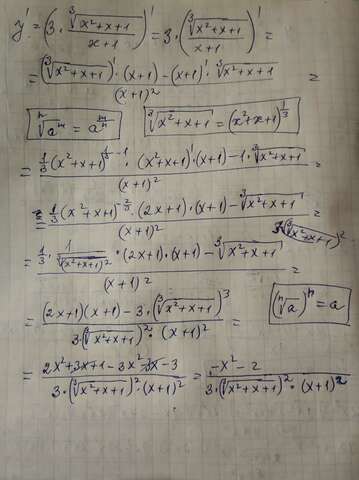 y' = (3 · ∛(x²+x+1) / (x+1))' = 3 · (∛(x²+x+1) / (x+1))' =
= ((∛(x²+x+1))' · (x+1) − (x+1)' · ∛(x²+x+1)) / (x+1)² =
ⁿ√(aᵐ) = a^(m/n)   ∛(x²+x+1) = (x²+x+1)^(1/3)
= (1/3 (x²+x+1)^(1/3 − 1) · (x²+x+1)' · (x+1) − 1 · ∛(x²+x+1)) / (x+1)² =
= (1/3 (x²+x+1)^(−2/3) · (2x+1) · (x+1) − ∛(x²+x+1)) / (x+1)² =
= (1/3 · 1/∛((x²+x+1)²) · (2x+1) · (x+1) − ∛(x²+x+1)) / (x+1)² =
3(∛(x²+x+1))²
= ((2x+1)(x+1) − 3 · (∛(x²+x+1))³) / (3 · (∛(x²+x+1))² · (x+1)²) =
(ⁿ√a)ⁿ = a
= (2x²+3x+1−3x²−3x−3) / (3 · (∛(x²+x+1))² · (x+1)²) = (−x²−2) / (3 · (∛(x²+x+1))² · (x+1)²)